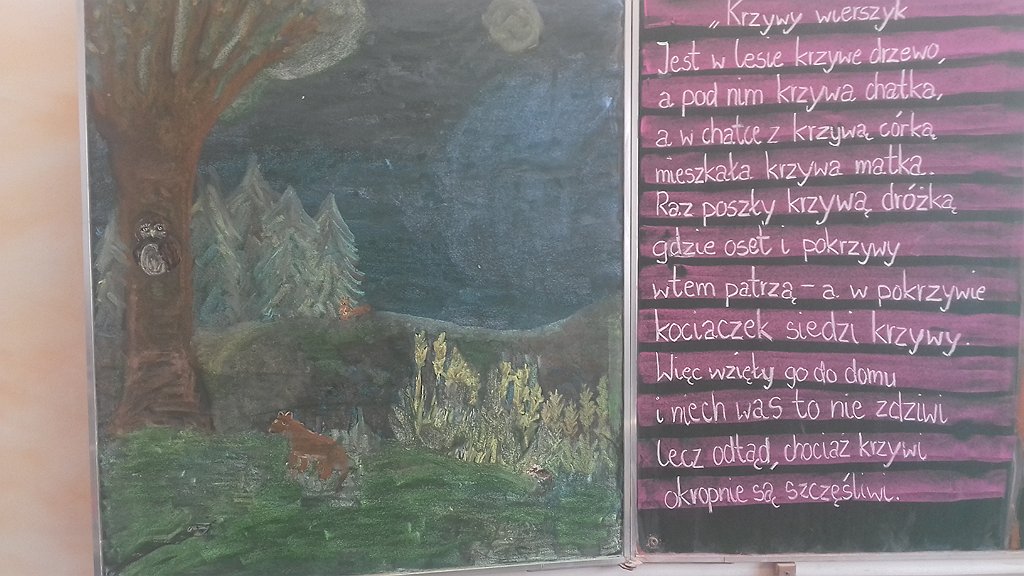 „Krzywy wierszyk
Jest w lesie krzywe drzewo,
a pod nim krzywa chatka,
a w chatce z krzywą córką
mieszkała krzywa matka.
Raz poszły krzywą dróżką
gdzie oset i pokrzywy
wtem patrzą – a w pokrzywie
kociaczek siedzi krzywy.
Więc wzięły go do domu
i niech was to nie zdziwi
lecz odtąd, chociaż krzywi
okropnie są szczęśliwi.